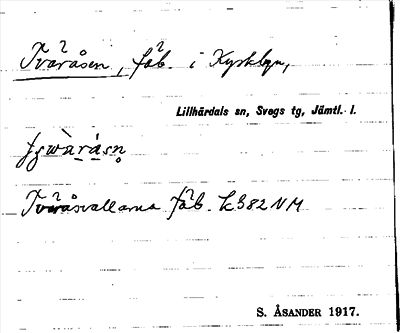 Tväråsen, fäb. i Kyrkbyn,
Lillhärdals sn, Svegs tg, Jämtl. l.
Tväråsvallarna fäb. k382 NM
S. ÅSANDER 1917.